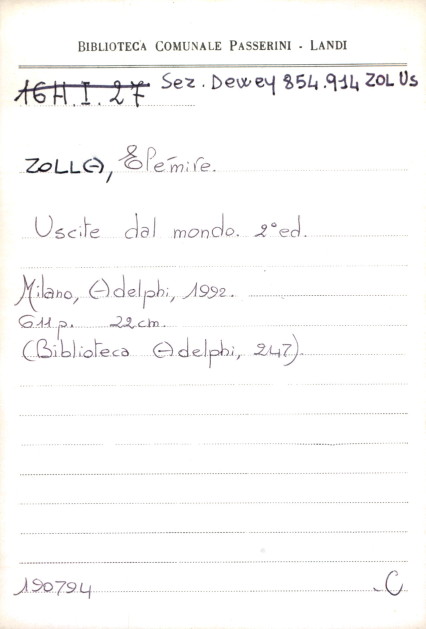 BIBLIOTECA COMUNALE PASSERINI - LANDI
16H.I.27 Sez. Dewey 854.914 ZOL Us
ZOLLA, Elémire.
Uscite dal mondo. 2°ed.
Milano, Adelphi, 1992.
611p. 22cm.
(Biblioteca Adelphi, 247).
190794 C